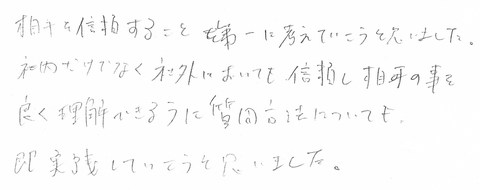 相手を信頼することを第一に考えていこうと思いました。
社内だけでなく社外においても信頼し相手の事を
良く理解できるように質問方法についても、
即実践していこうと思いました。